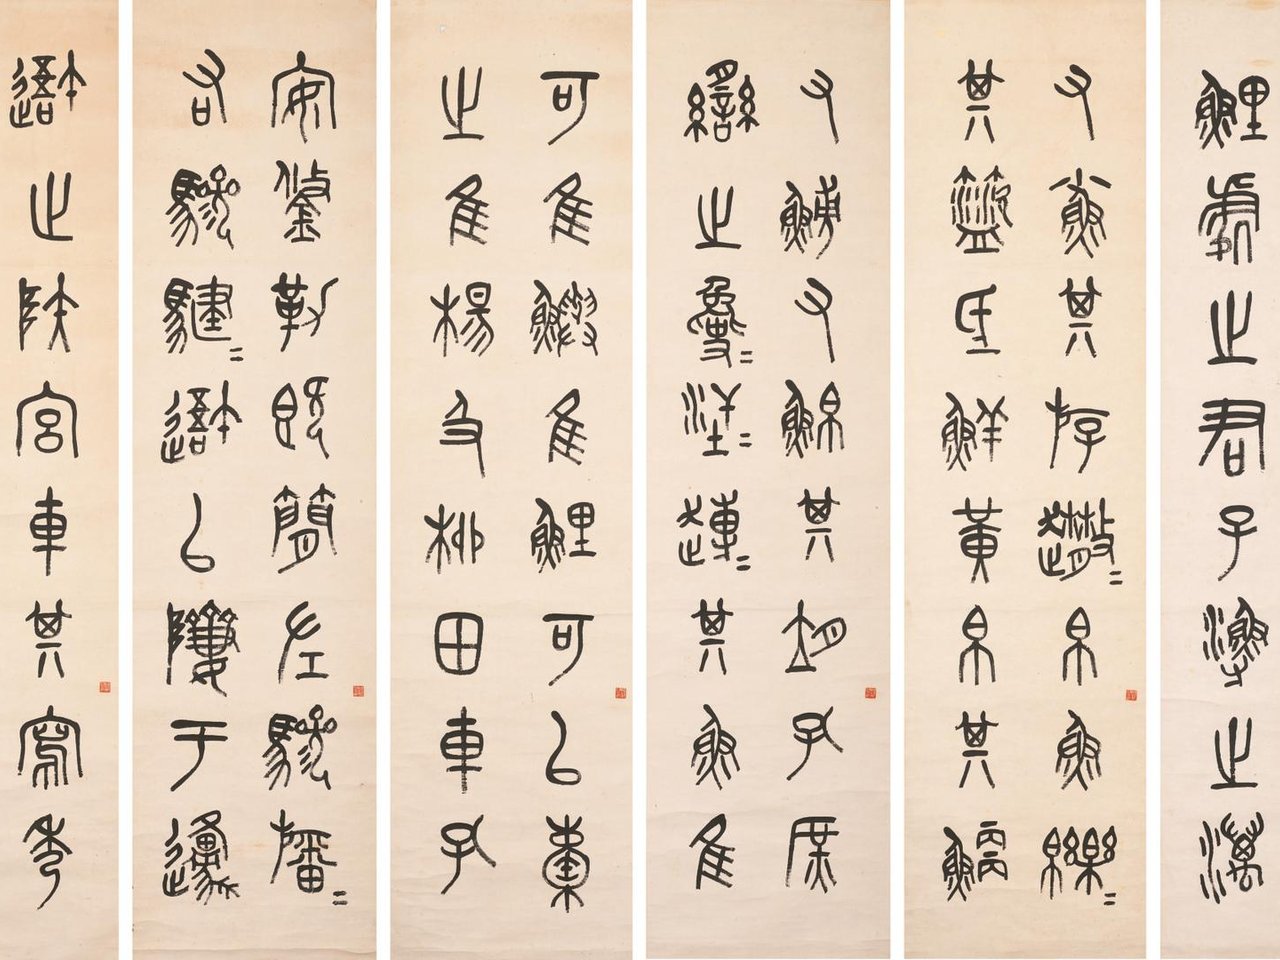 鯉處之君子漁之澫
又小魚其斿趣=帛魚皪=
其盜氐鮮黃帛其鯿
又鰟又鮊其胡孔庶
臠之夐=汗=趍=其魚隹
可隹鱮隹鯉可以橐
之隹楊及柳田車孔
安鋚勒既簡左驂旛=
右驂騝=避以隮于邍
避止陝宮車其寫秀